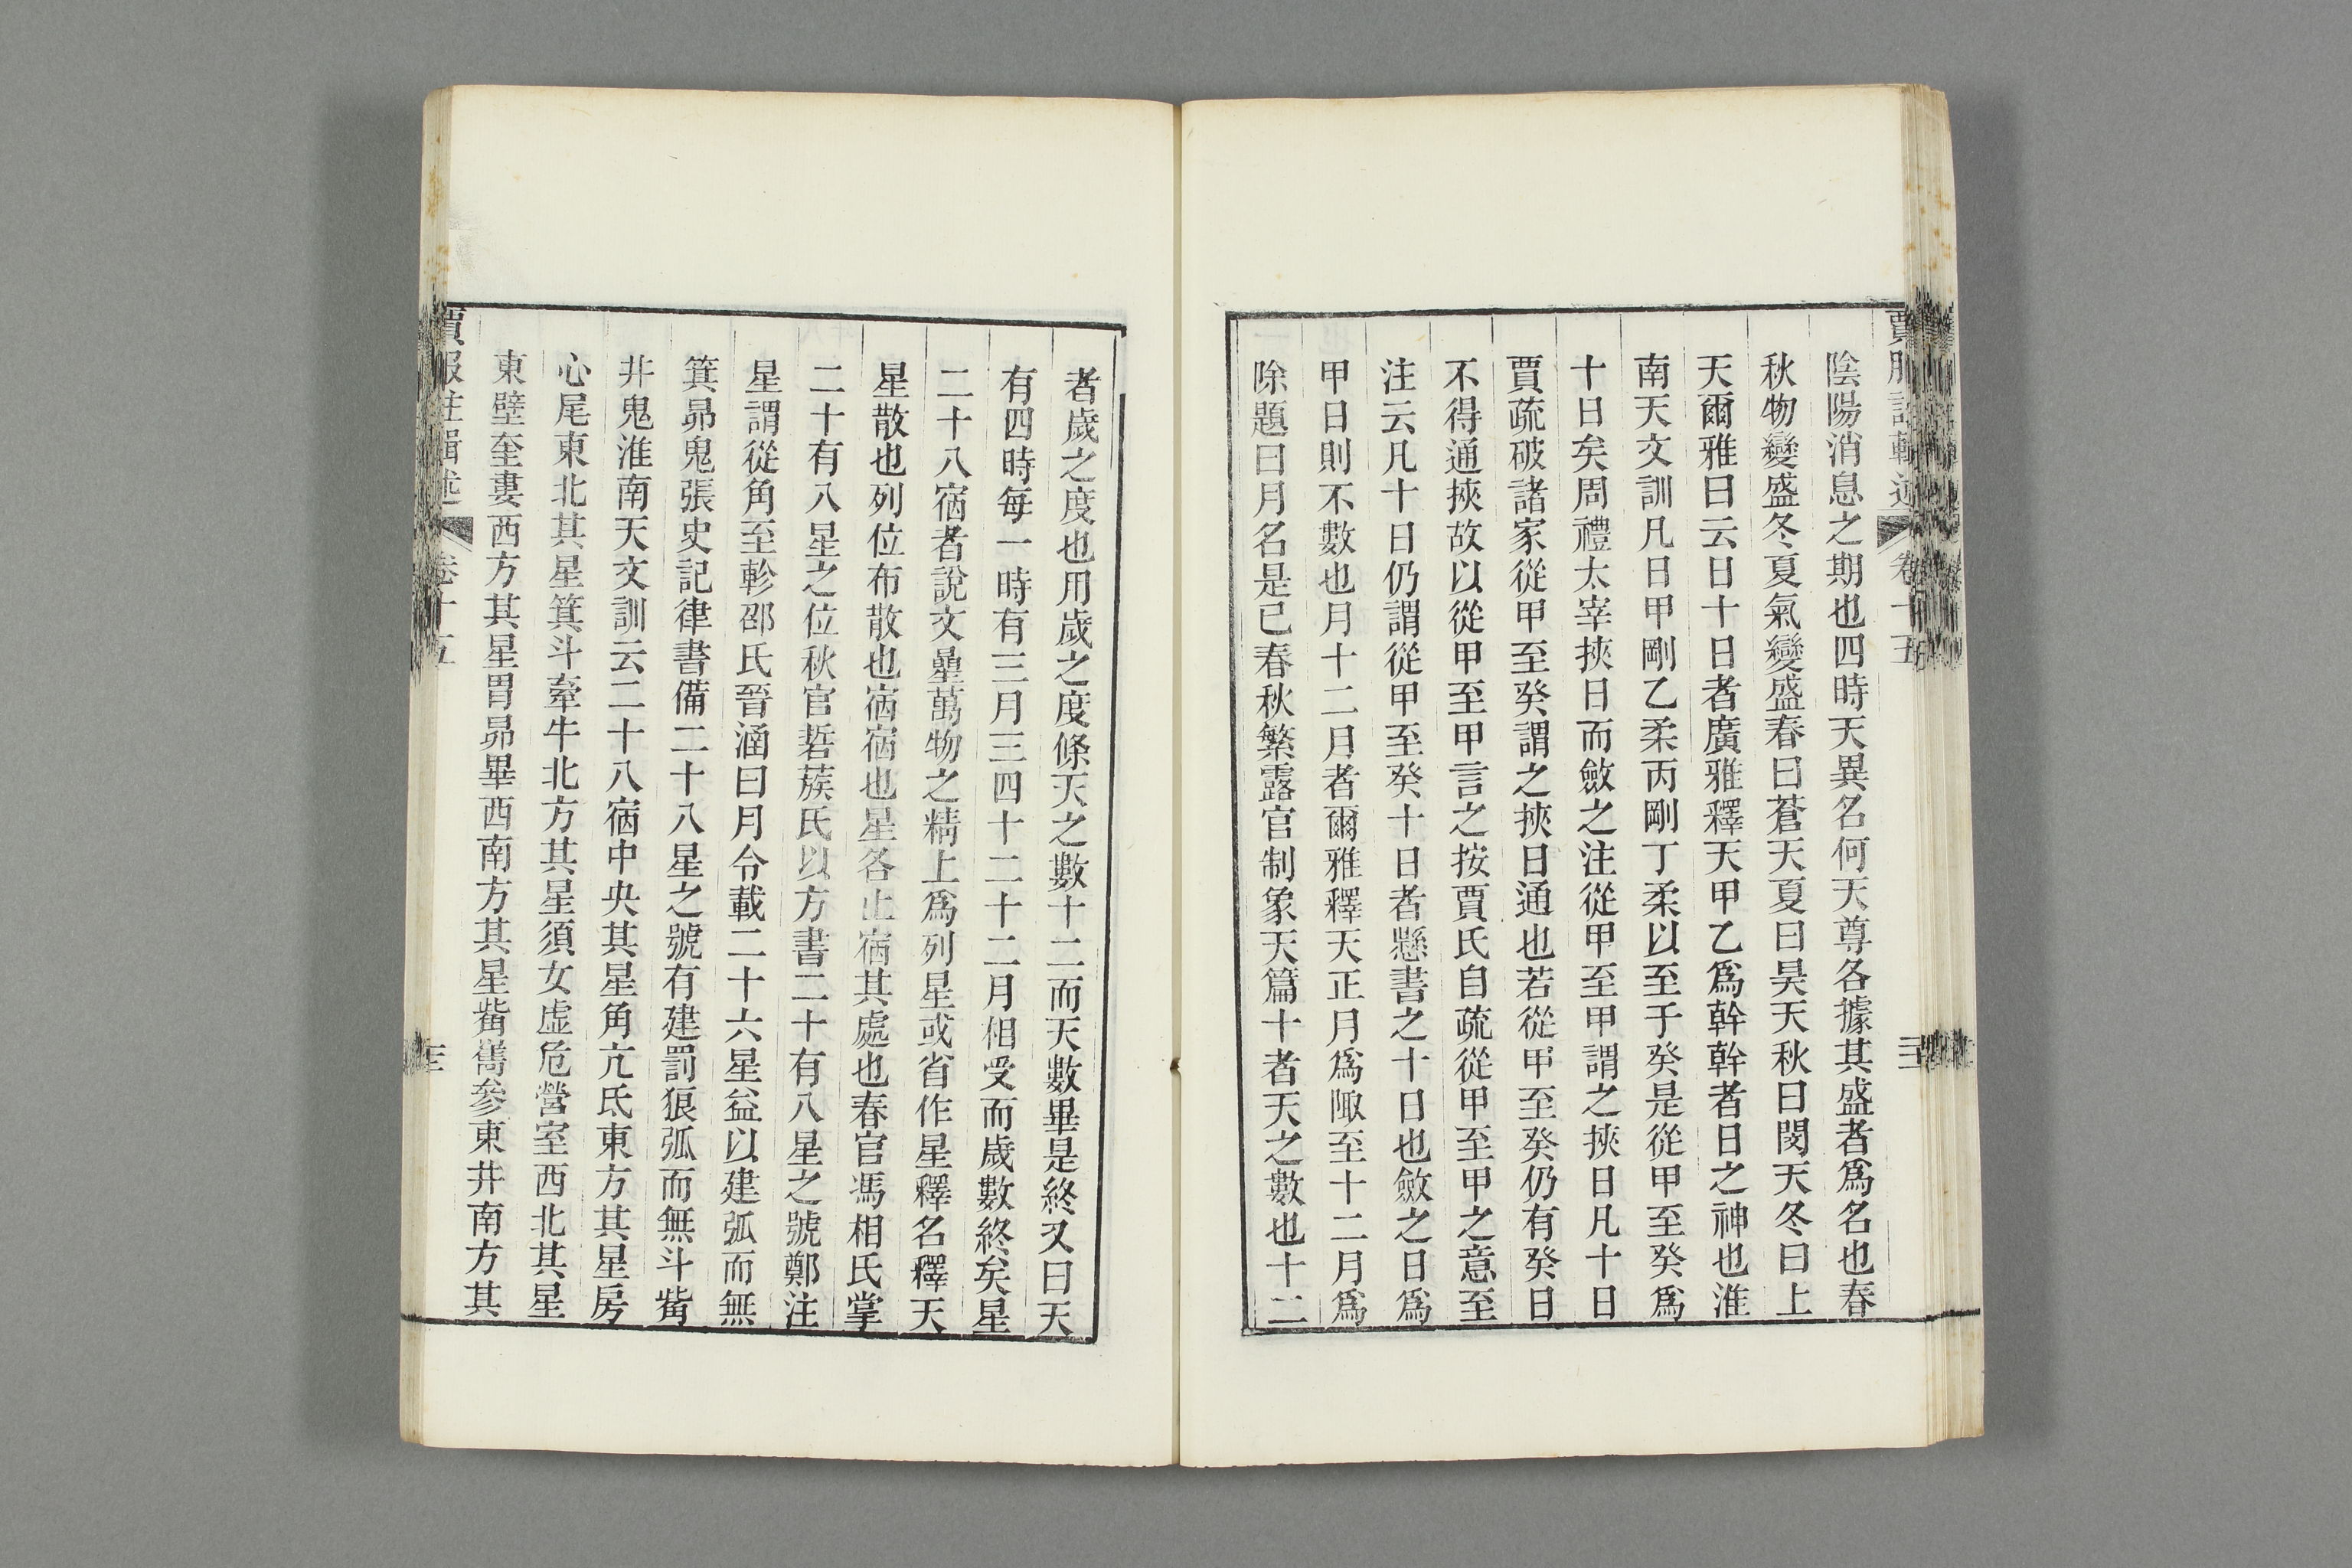 賈服注輯述 卷十五
陰陽消息之期也四時天異名何天尊各據其盛者爲名也春
秋物變盛冬夏氣變盛春曰蒼天夏曰昊天秋曰閔天冬曰上
天爾雅曰云日十日者廣雅釋天甲乙爲幹幹者日之神也淮
南天文訓凡日甲剛乙柔丙剛丁柔以至于癸是從甲至癸爲
十日矣周禮太宰挾日而斂之注從甲至甲謂之挾日凡十日
賈疏破諸家從甲至癸謂之挾日通也若從甲至癸仍有癸日
不得通挾故以從甲至甲言之按賈氏自疏從甲至甲之意至
注云凡十日仍謂從甲至癸十日者懸書之十日也斂之日爲
甲日則不數也月十二月者爾雅釋天正月爲陬至十二月爲
除題曰月名是已春秋繁露官制象天篇十者天之數也十二
者歲之度也用歲之度條天之數十二而天數畢是終又曰天
有四時每一時有三月三四十二十二月相受而歲數終矣星
二十八宿者說文曐萬物之精上爲列星或省作星釋名釋天
星散也列位布散也宿宿也星各止宿其處也春官馮相氏掌
二十有八星之位秋官硩蔟氏以方書二十有八星之號鄭注
星謂從角至軫邵氏晉涵曰月令載二十六星益以建弧而無
箕昴鬼張史記律書備二十八星之號有建罰狼弧而無斗觜
井鬼淮南天文訓云二十八宿中央其星角亢氐東方其星房
心尾東北其星箕斗牽牛北方其星須女虛危營室西北其星
東壁奎婁西方其星胃昴畢西南方其星觜觿參東井南方其
賈服注輯述 卷十五